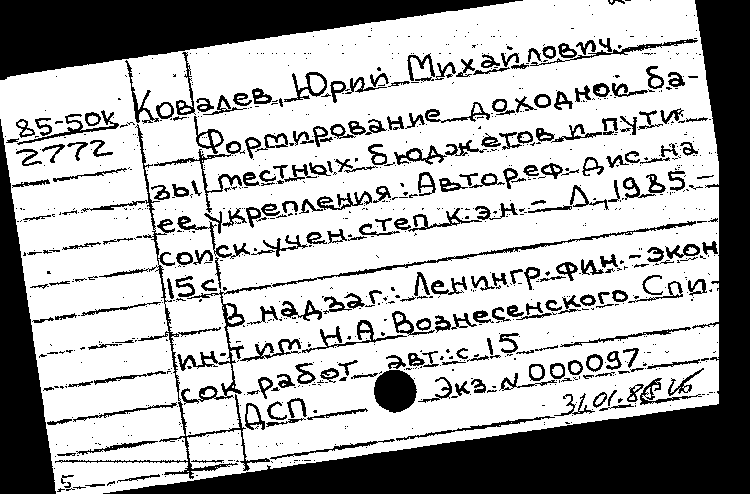 85-50к Ковалев, Юрий Михайлович.
2772 Формирование доходной ба-
зы местных бюджетов и пути
ее укрепления: Автореф. дис на
соиск. учен. степ к.э.н. – Л., 1985. –
15 с.
В надзаг.: Ленингр. фин.-экон
ин-т им. Н.А. Вознесенского. Спи-
сок работ авт.: с. 15
ДСП. Экз. N 000097
31.01.86
5